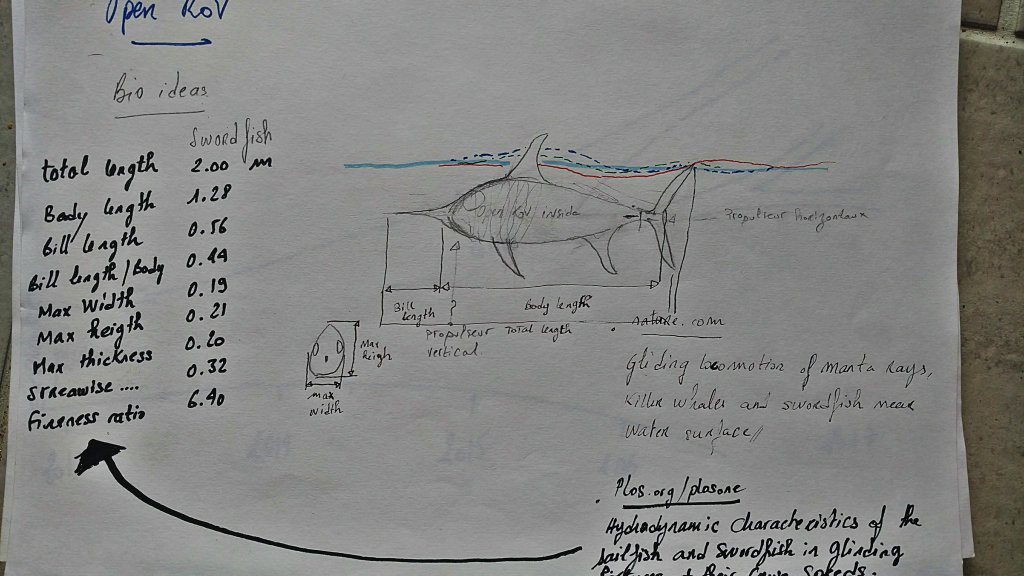 Open ROV
Bio ideas
Swordfish
total length 2.00 m
Body length 1.28
Bill length 0.56
Bill length/Body 0.44
Max Width 0.19
Max Heigth 0.21
Max thickness 0.20
Streawise .... 0.32
Fineness ratio 6.40
Open ROV inside
Propulseur horizontaux
Bill length
Body length
?
Propulseur vertical.
Total length
Max Heigh
max width
. nature.com
Gliding locomotion of manta rays,
Killer whales and swordfish near
water surface//
. Plos.org/plosone
Hydrodynamic characteristics of the
sailfish and swordfish in glinding
at their speeds.